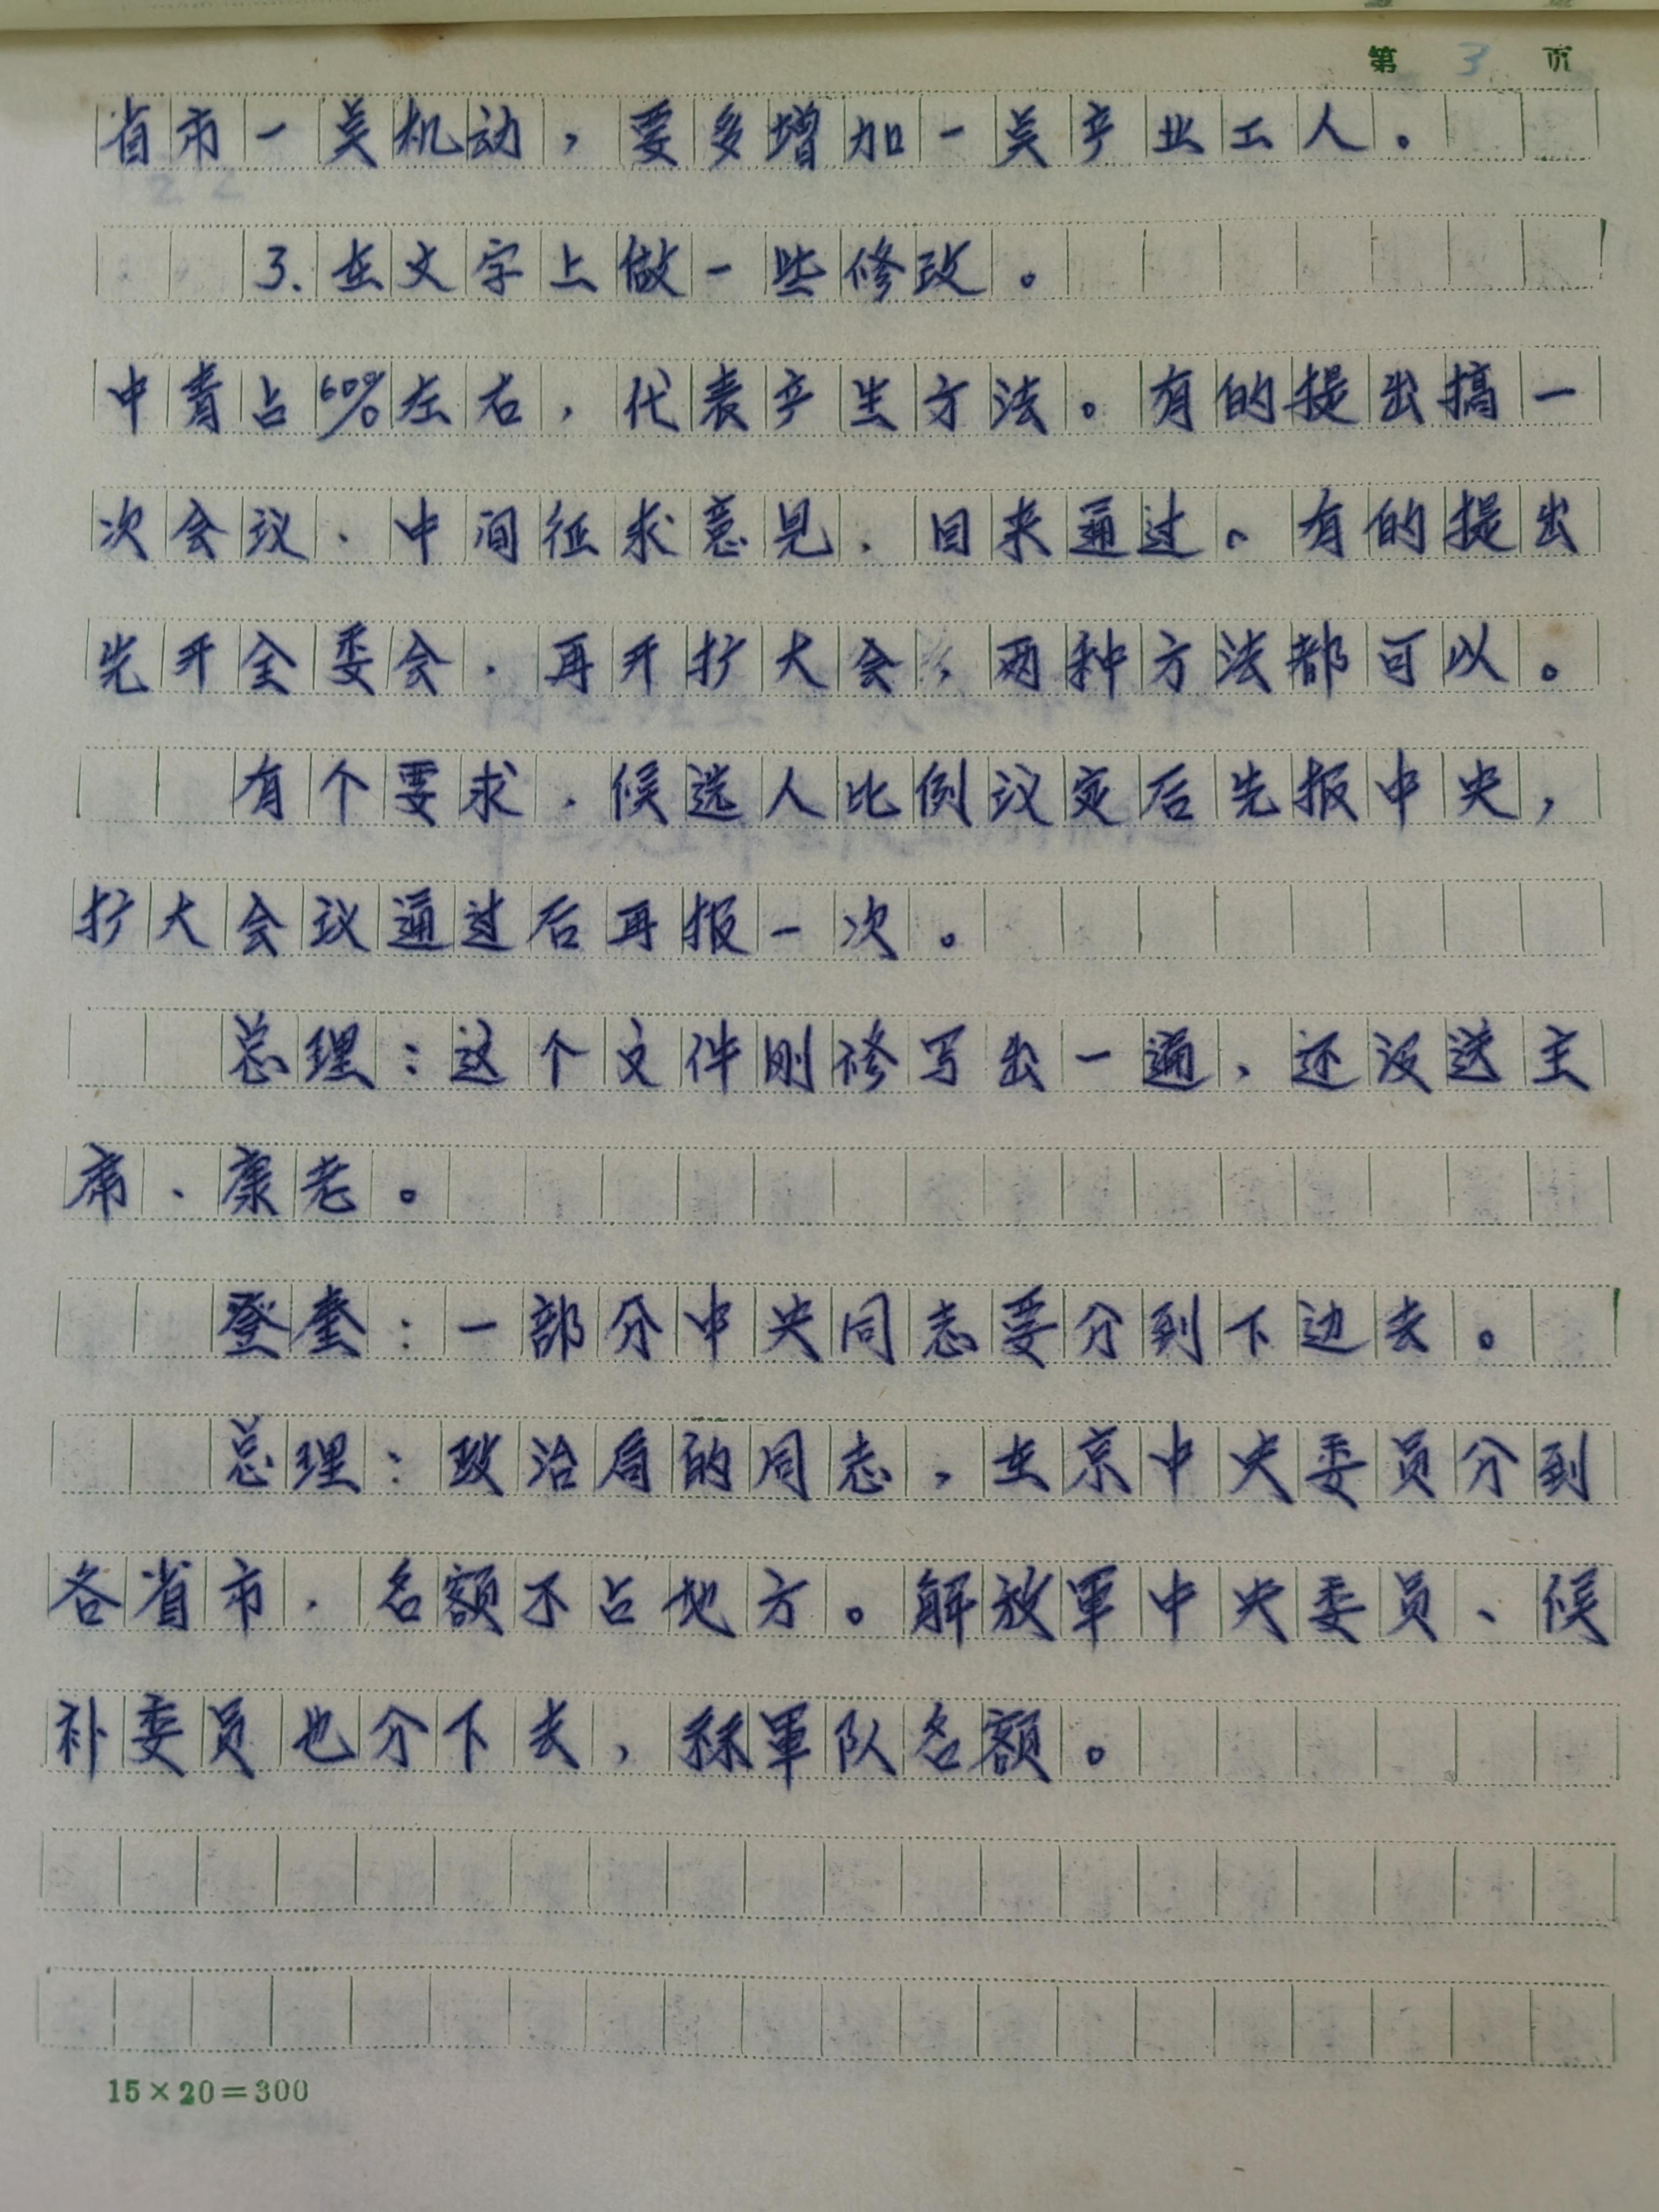 第 3 页
省市一点机动，要多增加一点产业工人。
3.在文字上做一些修改。
中青占60%左右，代表产生方法。有的提出搞一
次会议、中间征求意见，回来通过。有的提出
先开全委会，再开扩大会，两种方法都可以。
有个要求，候选人比例议定后先报中央，
扩大会议通过后再报一次。
总理：这个文件刚修写出一遍，还没送主
席、康老。
登奎：一部分中央同志要分到下边去。
总理：政治局的同志，在京中央委员分到
各省市，名额不占地方。解放军中央委员、候
补委员也分下去，军队名额。
15×20=300